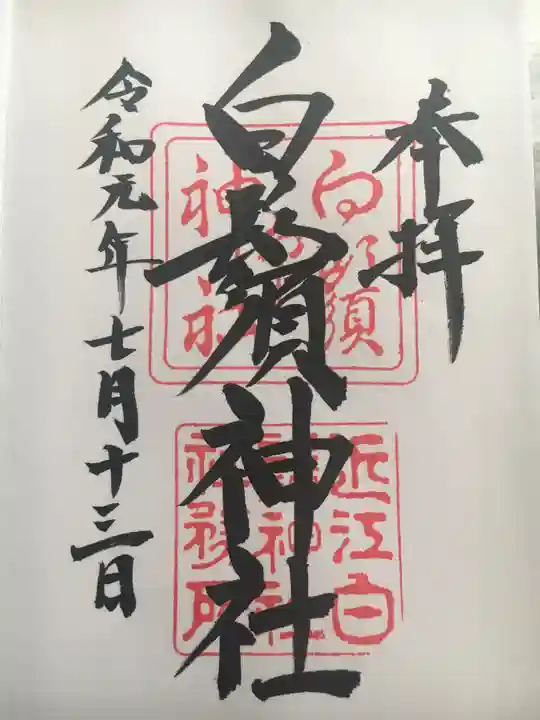 奉拝
白鬚神社
令和元年七月十三日
近江白
鬚神社
社務所